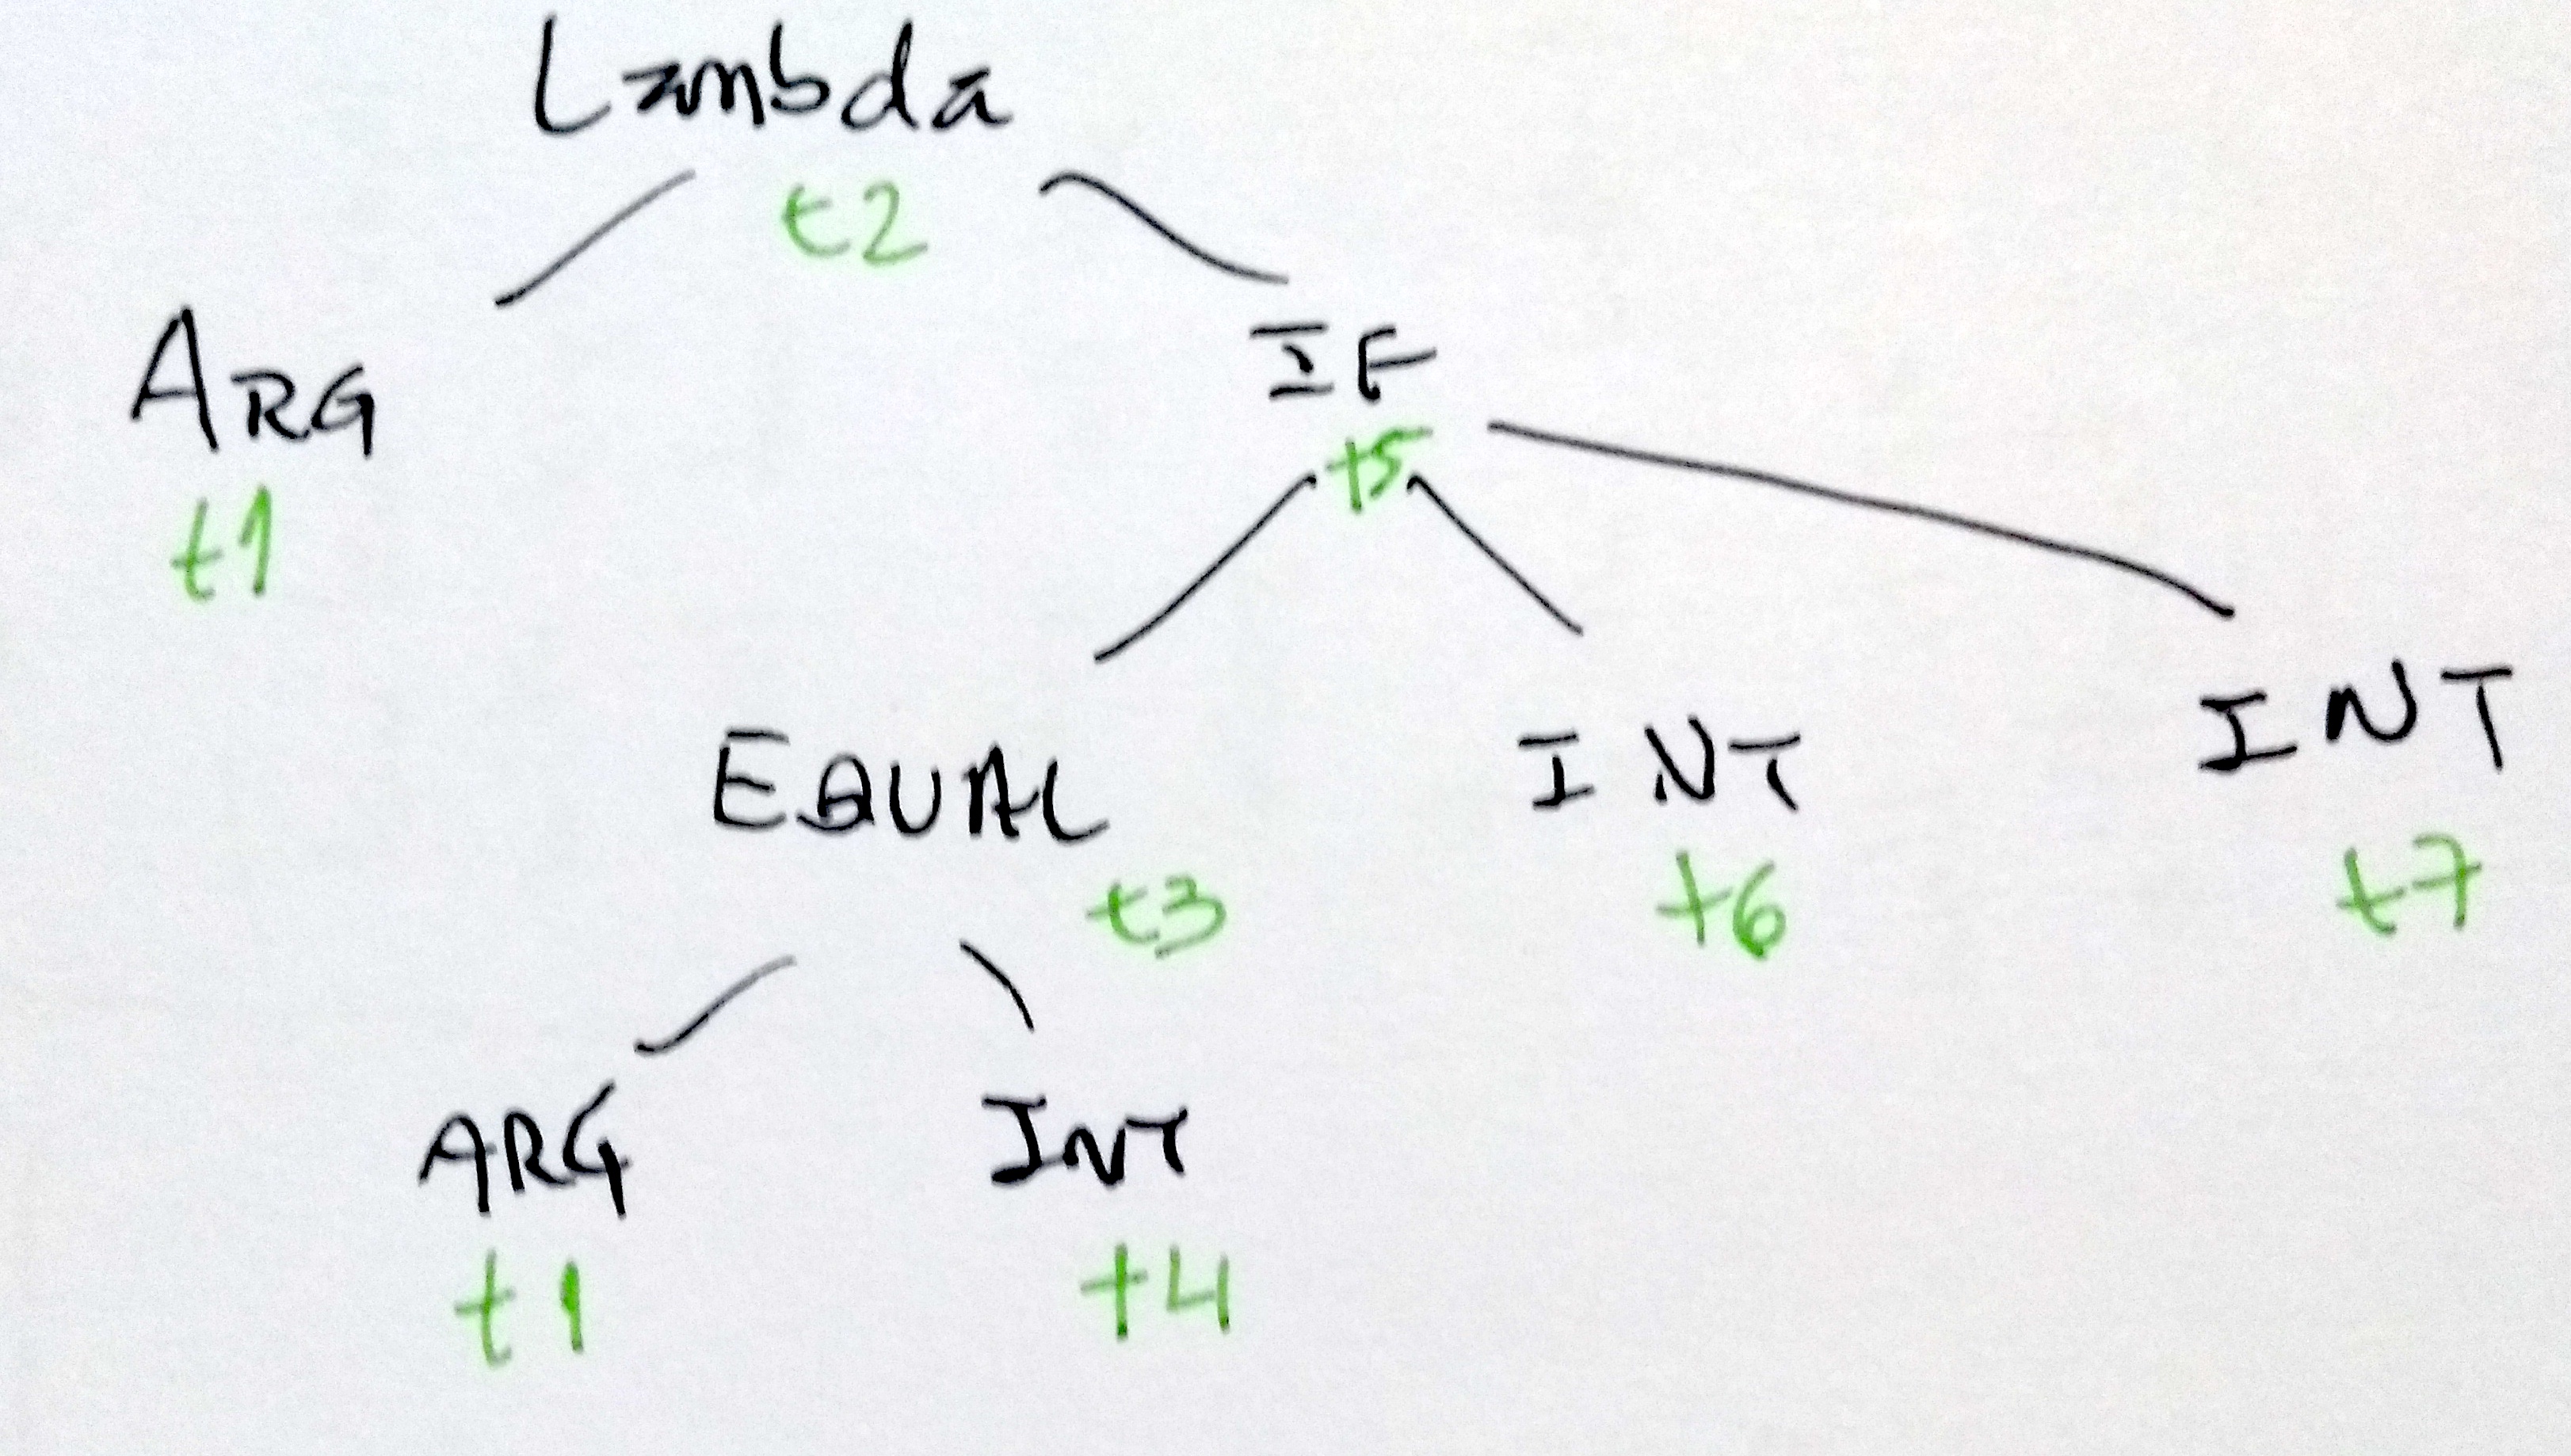 Lambda
t2
ARG
t1
IF
t5
EQUAL
t3
INT
t6
INT
t7
ARG
t1
INT
t4